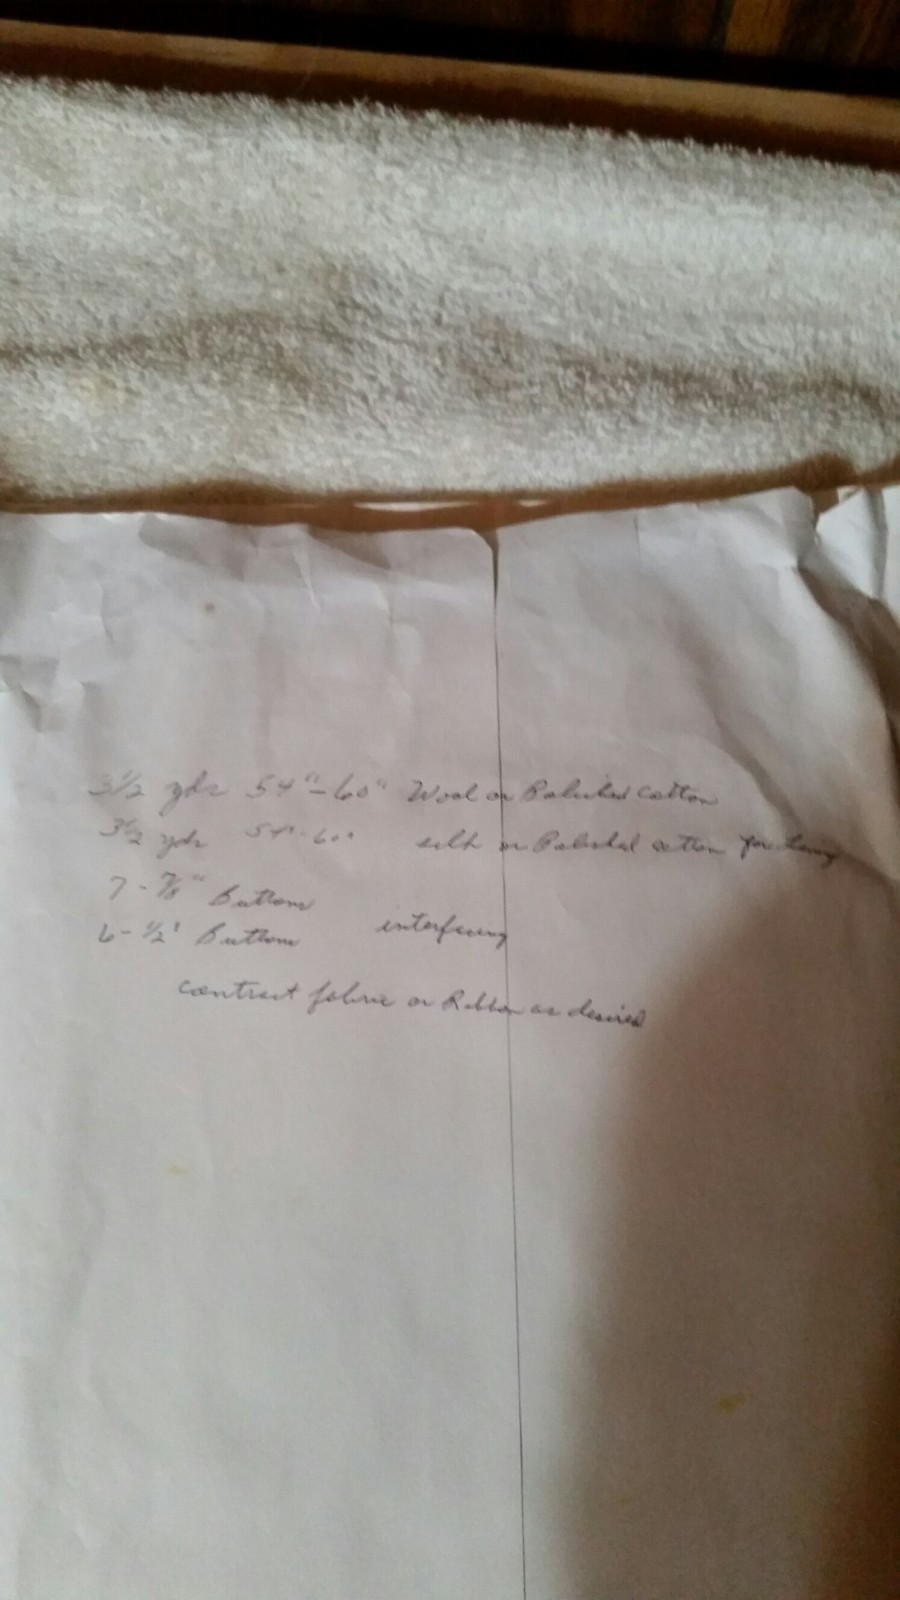 3½ yds 54"-60" Wool or Polished Cotton
3½ yds 54"-60" silk or Polished cotton for lining
7-⅞" Buttons
6-½" Buttons interfacing
contrast fabric or Ribbon as desired